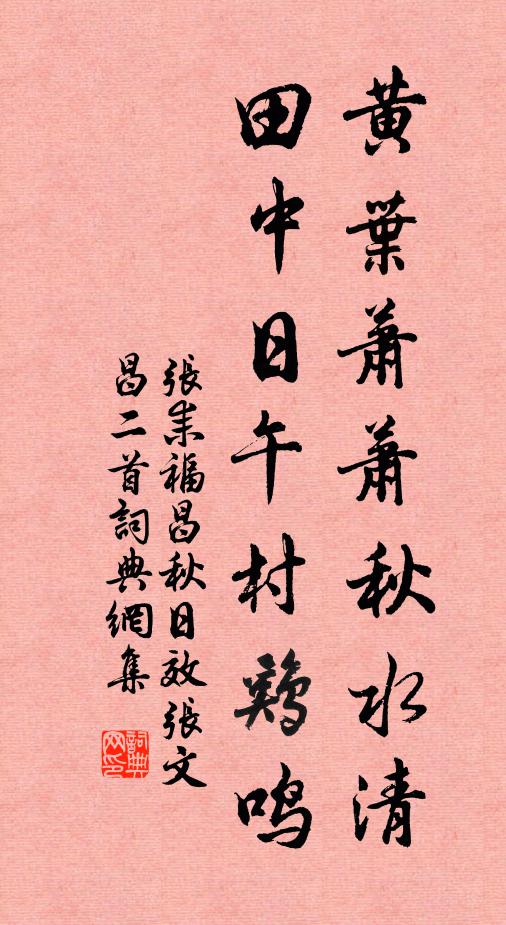 黃葉蕭蕭秋水清
田中日午村鷄鳴
張耒福昌秋日效張文
昌二首詞典網集
詞典網印